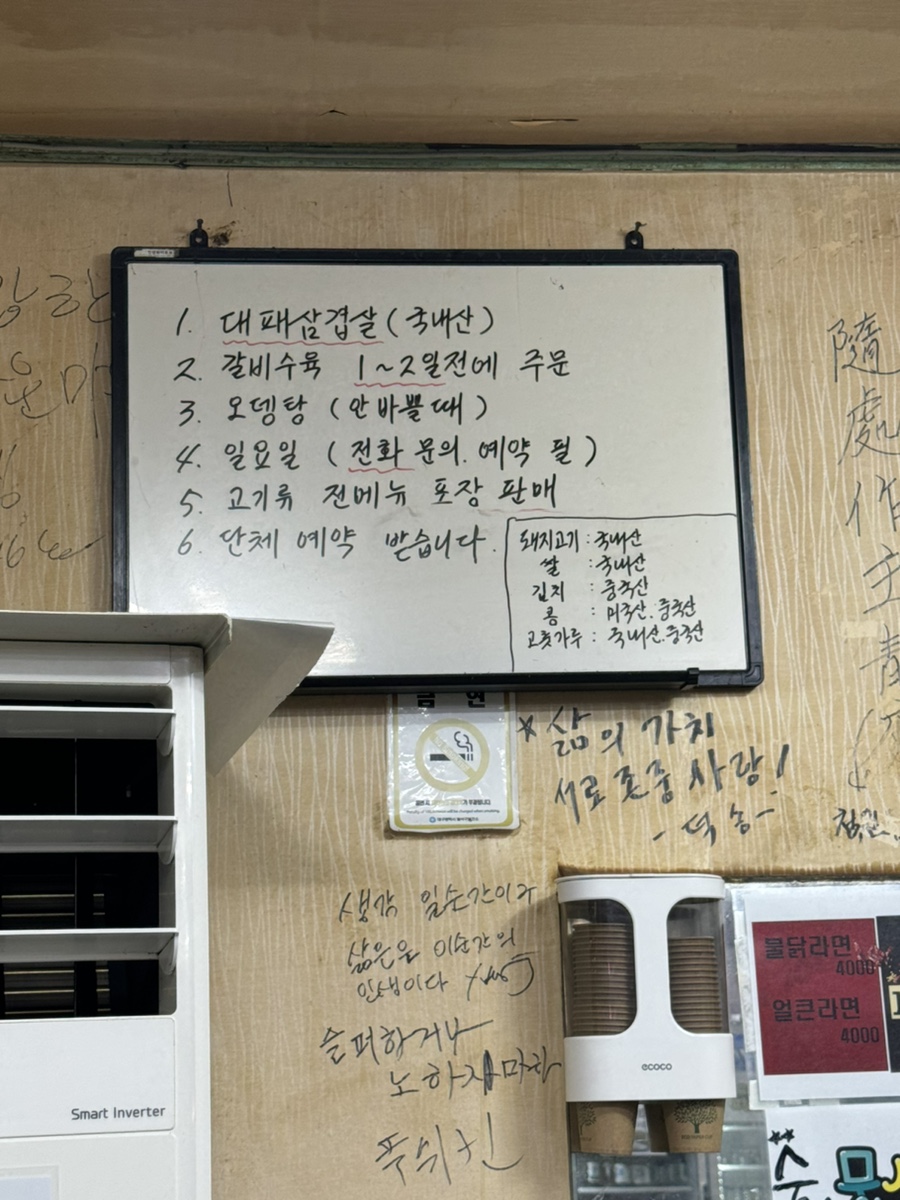 1. 대패삼겹살(국내산)
2. 갈비수육 1~2일전에 주문
3. 오뎅탕 (안바쁠때)
4. 일요일 (전화 문의. 예약 필)
5. 고기류 전메뉴 포장 판매
6. 단체 예약 받습니다.
돼지고기 : 국내산
쌀 : 국내산
김치 : 중국산
콩 : 미국산. 중국산
고춧가루 : 국내산. 중국산
금연
* 삶의 가치
서로 존중 사랑!
생각 일순간이주
이순간의
인생이다
슬퍼하거나
노하지마라
隨
處
作
主
불닭라면
4000
얼큰라면
4000
ecoco
Smart Inverter